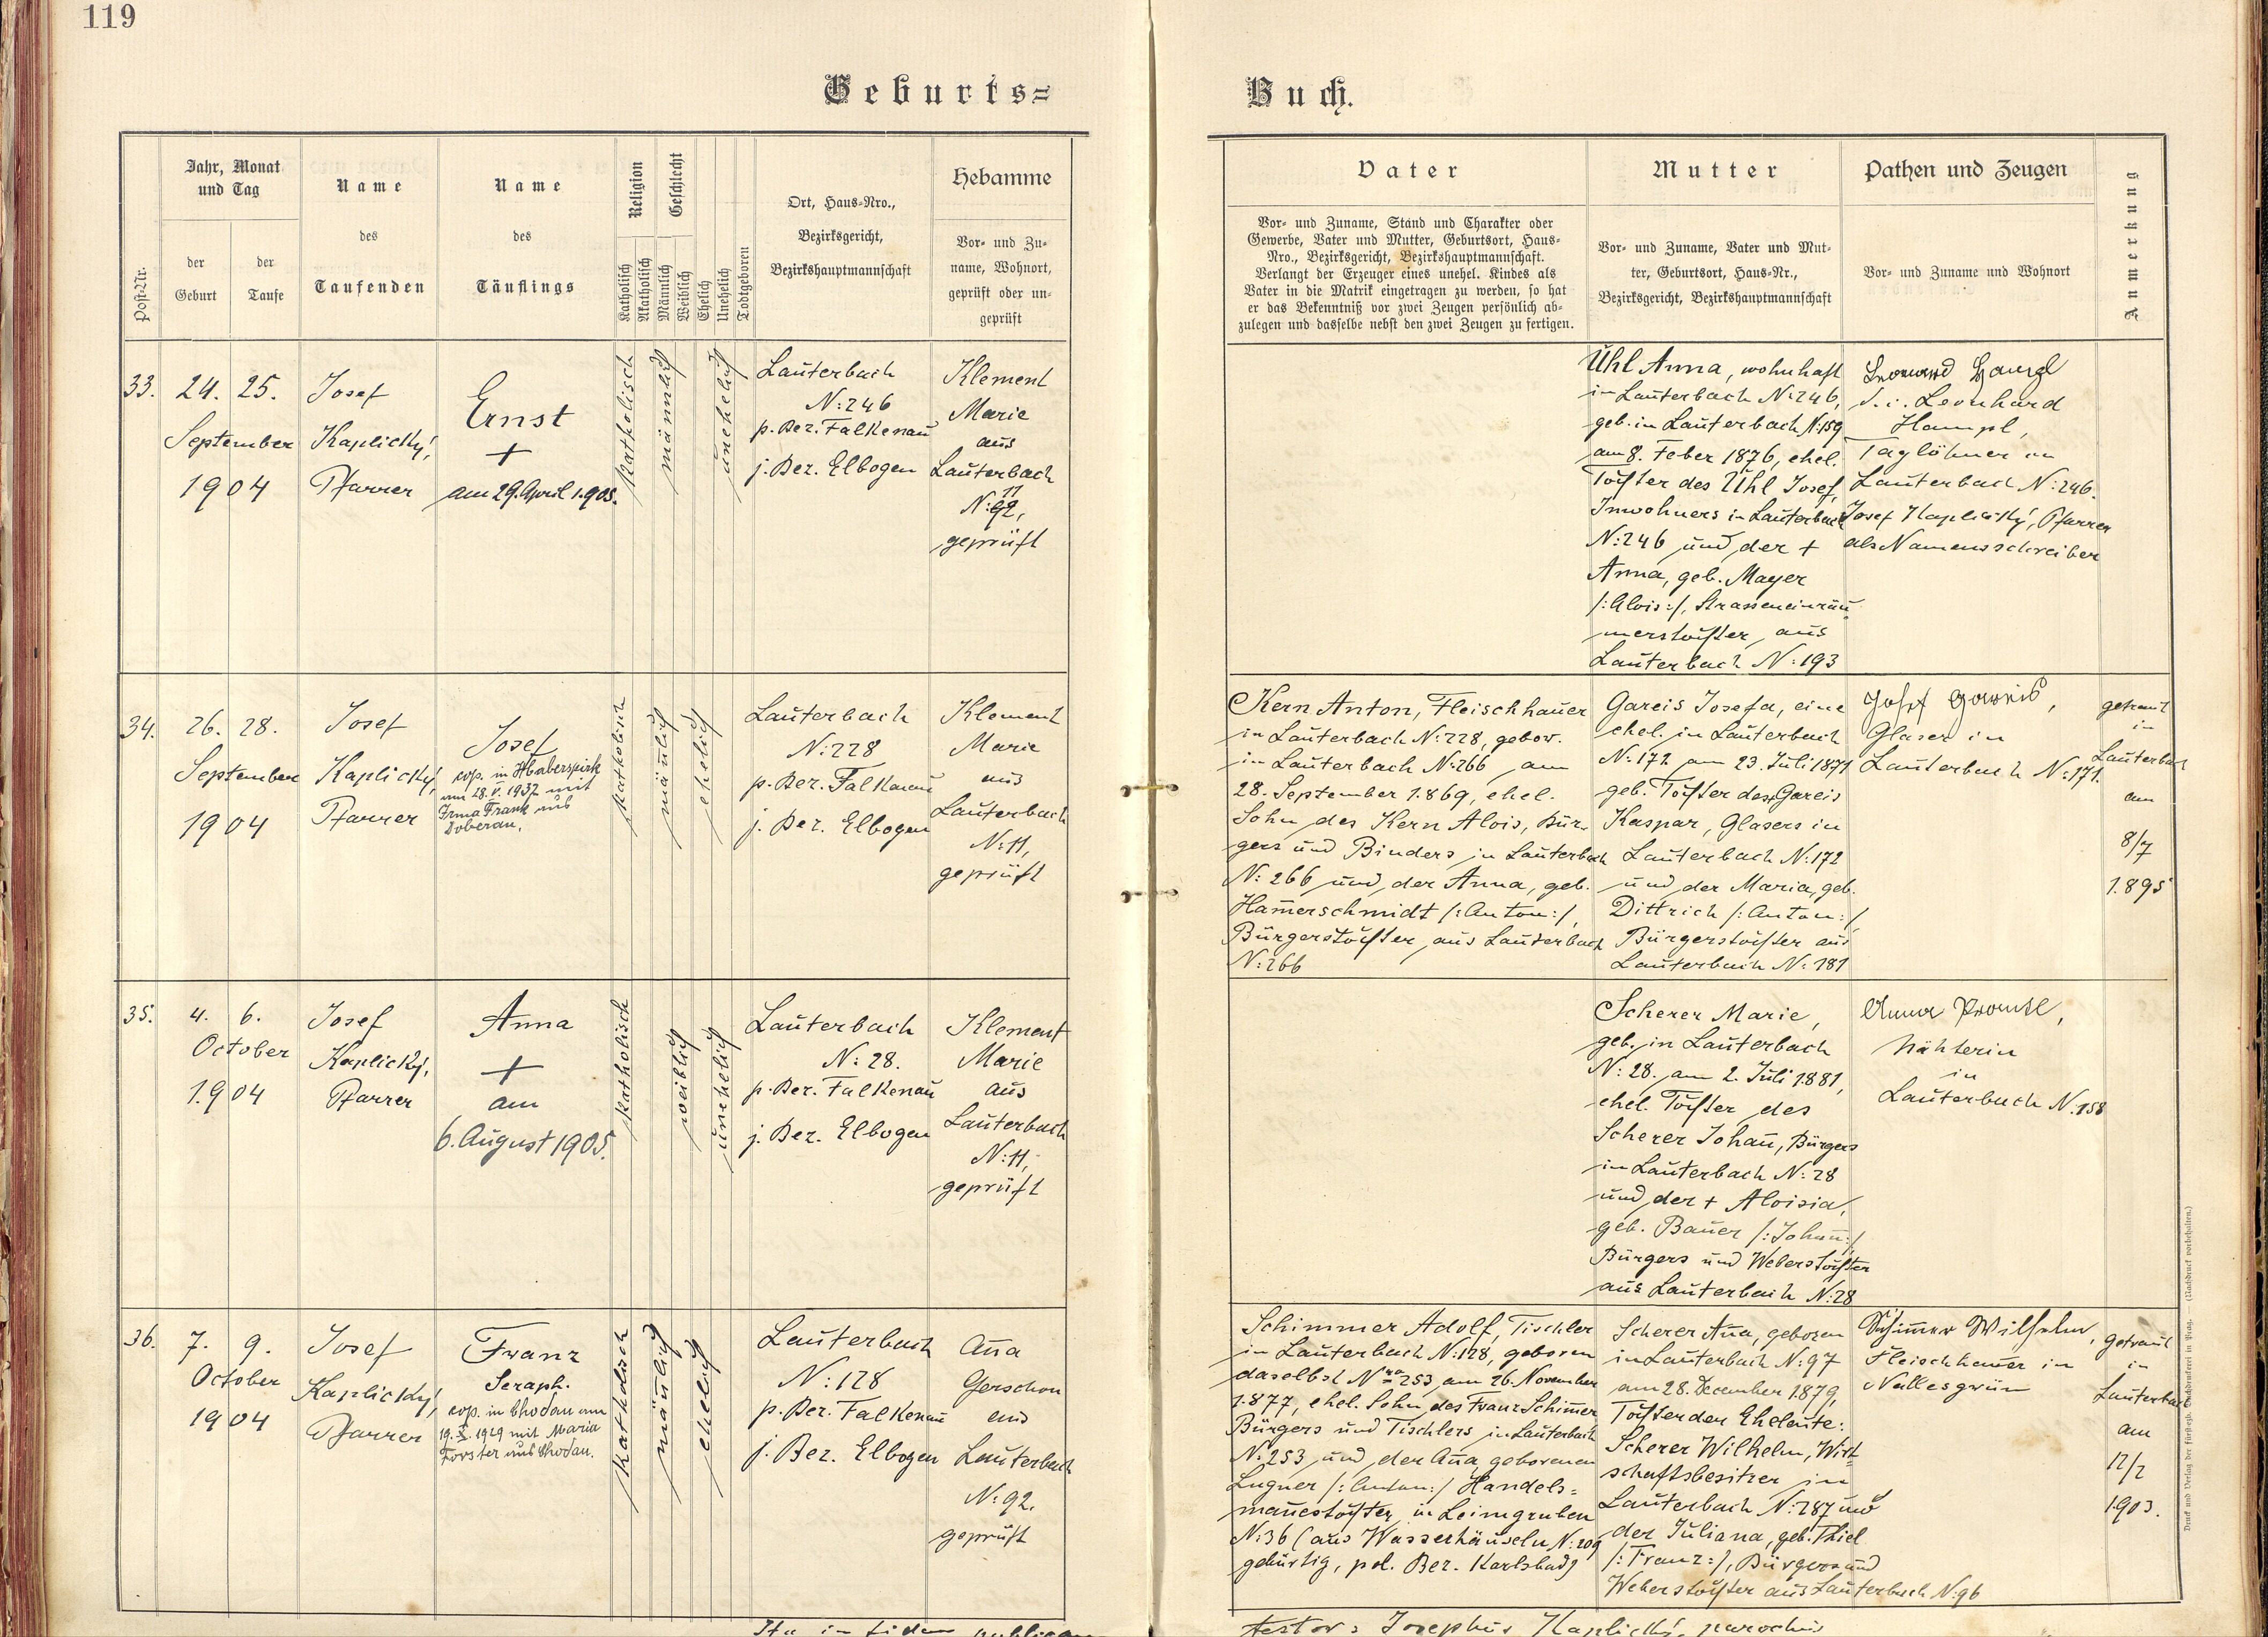 119
Geburts=
Buch.
Post-Nr.
Jahr, Monat
und Tag
der
Geburt
der
Taufe
Name
des
Taufenden
Name
des
Täuflings
Religion
Katholisch
Akatholisch
Geschlecht
Männlich
Weiblich
Ehelich
Unehelich
Todtgeboren
Ort, Haus-Nro.,
Bezirksgericht,
Bezirkshauptmannschaft
Hebamme
Vor- und Zu-
name, Wohnort,
geprüft oder un-
geprüft
Vater
Vor- und Zuname, Stand und Charakter oder
Gewerbe, Vater und Mutter, Geburtsort, Haus-
Nro., Bezirksgericht, Bezirkshauptmannschaft.
Verlangt der Erzeuger eines unehel. Kindes als
Vater in die Matrik eingetragen zu werden, so hat
er das Bekenntniß vor zwei Zeugen persönlich ab-
zulegen und dasselbe nebst den zwei Zeugen zu fertigen.
Mutter
Vor- und Zuname, Vater und Mut-
ter, Geburtsort, Haus-Nr.,
Bezirksgericht, Bezirkshauptmannschaft
Pathen und Zeugen
Vor- und Zuname und Wohnort
Anmerkung
33.
24. 25.
September
1904
Josef
Kaplický,
Pfarrer
Ernst
+
am 29. April 1905.
katholisch
männlich
unehelich
Lauterbach
N: 246
p. Bez. Falkenau
j. Bez. Elbogen
Klement
Marie
aus
Lauterbach
11
N: 92,
geprüft
Uhl Anna, wohnhaft
in Lauterbach N: 246,
geb. in Lauterbach N: 159
am 8. Feber 1876, ehel.
Tochter des Uhl Josef,
Inwohners in Lauterbach
N: 246 und der +
Anna, geb. Mayer
/: Alois :/, Strasseneinräu-
merstochter aus
Lauterbach N: 193
d. i. Leonhard
Hampl,
Taglöhner in
Lauterbach N: 246.
Josef Kaplický, Pfarrer
als Namensschreiber
34.
26. 28.
September
1904
Josef
Kaplický,
Pfarrer
Josef
cop. in Haberspirk
am 28. V. 1937 mit
Irma Frank aus
Doberau.
katholisch
männlich
ehelich
Lauterbach
N: 228
p. Bez. Falkenau
j. Bez. Elbogen
Klement
Marie
aus
Lauterbach
N: 11,
geprüft
Kern Anton, Fleischhauer
in Lauterbach N: 228, gebor.
in Lauterbach N: 266 am
28. September 1869, ehel.
Sohn des Kern Alois, Bür-
gers und Binders in Lauterbach
N: 266 und der Anna, geb.
Hamerschmidt /: Anton :/,
Bürgerstochter aus Lauterbach
N: 266
Gareis Josefa, eine
ehel. in Lauterbach
N: 172 am 23. Juli 1871
geb. Tochter des Gareis
Kaspar, Glasers in
Lauterbach N: 172
und der Maria, geb.
Dittrich /: Anton :/
Bürgerstochter aus
Lauterbach N: 181
Josef Gareis,
Glaser in
Lauterbach N: 171.
getraut
in
Lauterbach
am
8/7
1895
35.
4. 6.
October
1904
Josef
Kaplický,
Pfarrer
Anna
+
am
6. August 1905.
katholisch
weiblich
unehelich
Lauterbach
N: 28.
p. Bez. Falkenau
j. Bez. Elbogen
Klement
Marie
aus
Lauterbach
N: 11,
geprüft
Scherer Marie,
geb. in Lauterbach
N: 28. am 2. Juli 1881,
ehel. Tochter des
Scherer Johañ, Bürgers
in Lauterbach N: 28
und der + Aloisia,
geb. Bauer /: Johañ :/
Bürgers und Weberstochter
aus Lauterbach N: 28
Anna
Nähterin
in
Lauterbach N. 158
36.
7. 9.
October
1904
Josef
Kaplický,
Pfarrer
Franz
Seraph.
cop. in Chodau am
19. X. 1929 mit Maria
Forster aus Chodau.
katholisch
männlich
ehelich
Lauterbach
N: 128
p. Bez. Falkenau
j. Bez. Elbogen
Aña
Gerschon
aus
Lauterbach
N: 92.
geprüft
Schimmer Adolf, Tischler
in Lauterbach N: 128, geboren
daselbst Nro 253 am 26. November
1877, ehel. Sohn des Franz Schimer,
Bürgers und Tischlers in Lauterbach
N: 253 und der Aña, geborenen
Lugner /: Anton :/ Handels-
mañestochter in Leimgruben
N: 36 (aus Wasserhäuseln N: 209
gebürtig, pol. Bez. Karlsbad)
Scherer Aña, geboren
in Lauterbach N: 97
am 28. December 1879,
Tochter der Eheleute:
Scherer Wilhelm, Wirt-
schaftsbesitzer in
Lauterbach N: 287 und
der Juliana, geb. Thiel
/: Franz :/, Bürgers und
Weberstochter aus Lauterbach N: 96
Schimer Wilhelm,
Fleischhauer in
Nallesgrün
getraut
in
Lauterbach
am
17/2
1903.
Ita in fidem
testor: Josephus Kaplický, parochus